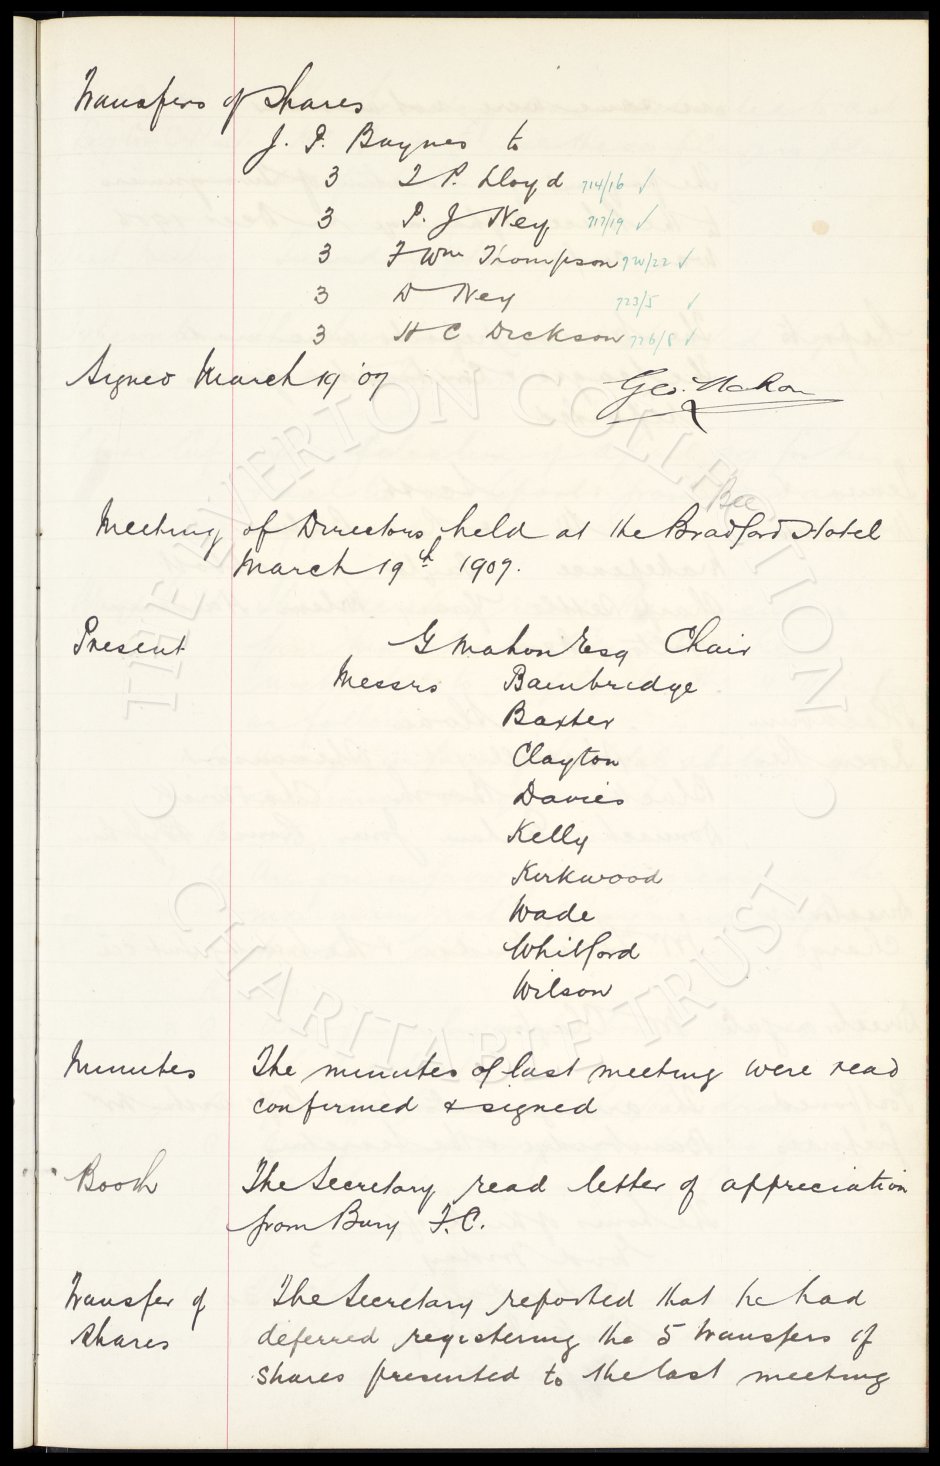 Transfers of Shares
J. P. Baynes to
3 T P. Lloyd 714/16 ✓
3 P. J Ney 717/19 ✓
3 F Wm Thompson 720/22 ✓
3 D Ney 723/5 ✓
3 H C Dickson 726/8 ✓
Signed March 19 '07 Geo. Mahon
Meeting of Directors held at the Bradford Hotel
March 19th 1907.
Present G Mahon Esq Chair
Messrs Bainbridge
Baxter
Clayton
Davies
Kelly
Kirkwood
Wade
Whitford
Wilson
Minutes The minutes of last meeting were read
confirmed & signed
Booth The Secretary read letter of appreciation
from Bury F.C.
Transfer of The Secretary reported that he had
Shares deferred registering the 5 transfers of
shares presented to the last meeting
THE EVERTON COLLECTION
CHARITABLE TRUST